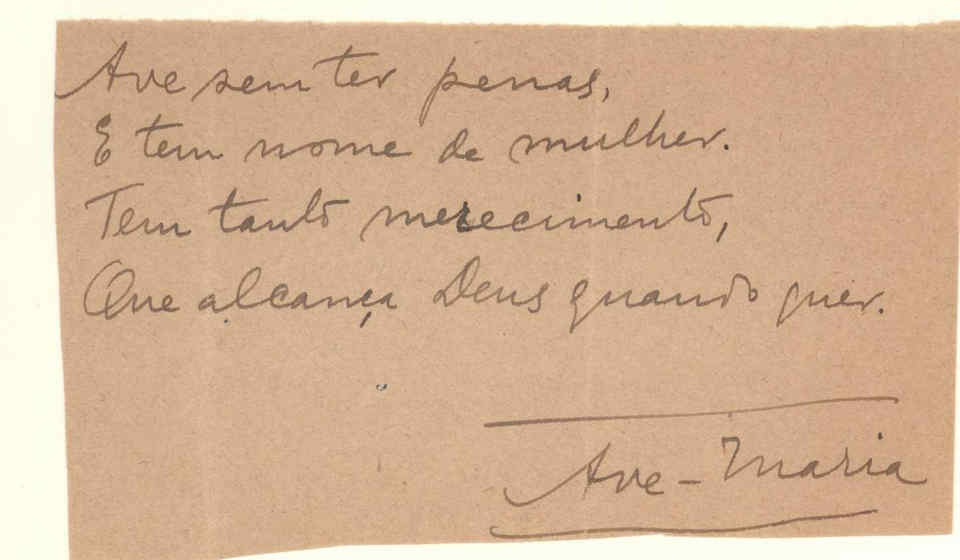 Ave sem ter penas,
E tem nome de mulher.
Tem tanto merecimento,
Que alcança Deus quando quer.
Ave-Maria